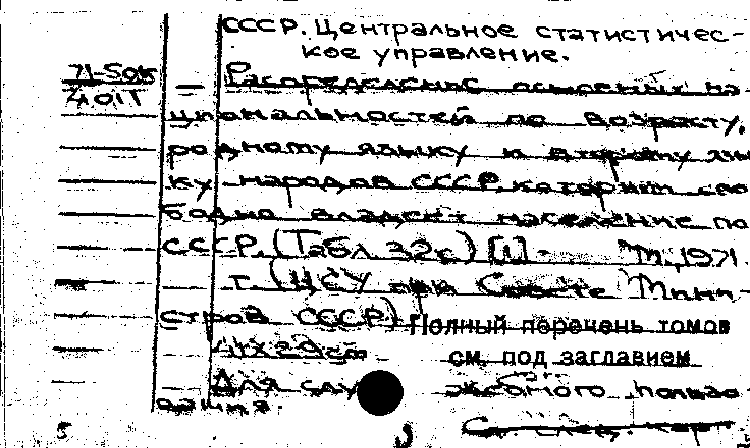 СССР. Центральное статистичес-
кое управление.
71-505
4011
— Распределение основных на-
циональностей по возрасту,
родному языку и второму язы-
ку народов СССР, которым сво-
бодно владеет население по
СССР. (Табл. 32с) [1]- М., 1971.
т. (ЦСУ при Совете Мини-
стров СССР)
Полный перечень томов
см. под заглавием
Для служебного пользо-
вания.
См. след. карт.
5